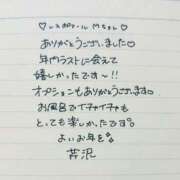 ありがとうございました♡
年内ラストに会えて
嬉しかったです〜!!
オプションもありがとうございます。
お風呂でイチャイチャも
とても楽しかたです。
よいお年を。
芹沢